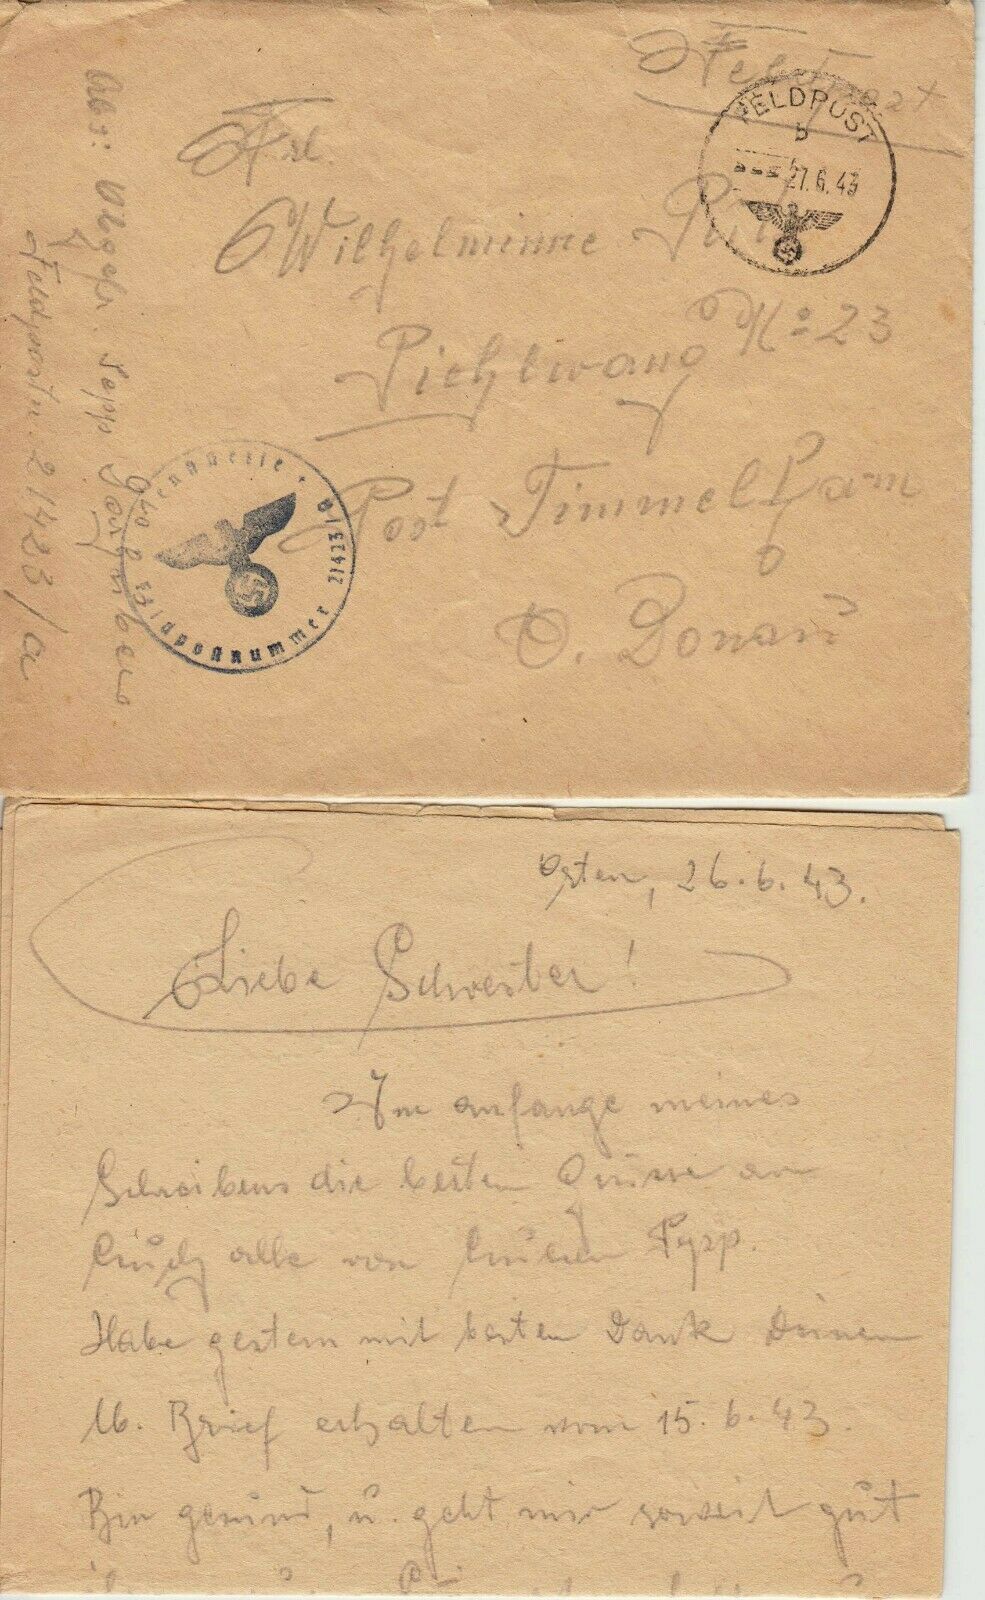 Feldpost
FELDPOST
b
27.6.43
Frl.
Wilhelminne
Pichlwang No 23
Post Timmelkam
O. Donau
Abs: Obgefr. Sepp
Feldpostn. 21423/a
Feldpostnummer 21423
Osten, 26.6.43.
Liebe Schwester!
Im anfange meines
Schreibens die besten Grüsse an
Euch alle von Euren Pepp.
Habe gestern mit besten Dank Deinen
lb. Brief erhalten vom 15.6.43.
Bin gesund, u. geht mir soweit gut